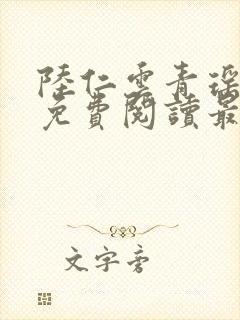 陸仁雲青瑤
免費閱讀最
文字旁